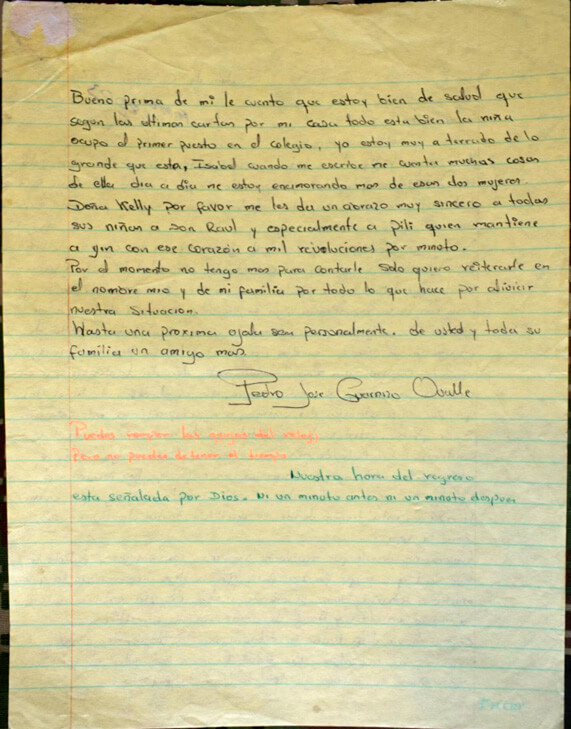 Bueno prima de mi le cuento que estoy bien de salud que
segun las ultimas cartas por mi casa todo esta bien la niña
ocupo el primer puesto en el colegio, yo estoy muy aterrado de lo
grande que esta, Isabel cuando me escribe me cuenta muchas cosas
de ella dia a dia me estoy enamorando mas de esas dos mujeres
Doña Kelly por favor me les da un abrazo muy sincero a todas
sus niñas a Don Raul y especialmente a Pili quien mantiene
a gin con ese corazón a mil revoluciones por minuto.
Por el momento no tengo mas para contarle solo quiero reiterarle en
el nombre mio y de mi familia por todo lo que hace por aliviar
nuestra situacion.
Hasta una proxima ojala sea personalmente. de usted y toda su
familia un amigo mas.
Pedro Jose Guarnizo Ovalle
Puedes romper las del reloj,
Pero no puedes detener el tiempo
Nuestra hora del regreso
esta señalada por Dios. Ni un minuto antes ni un minuto despues